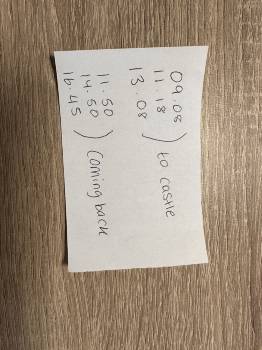 09.08
11.18 ) to castle
13.08
11.50
14.50 ) Coming back
16.45